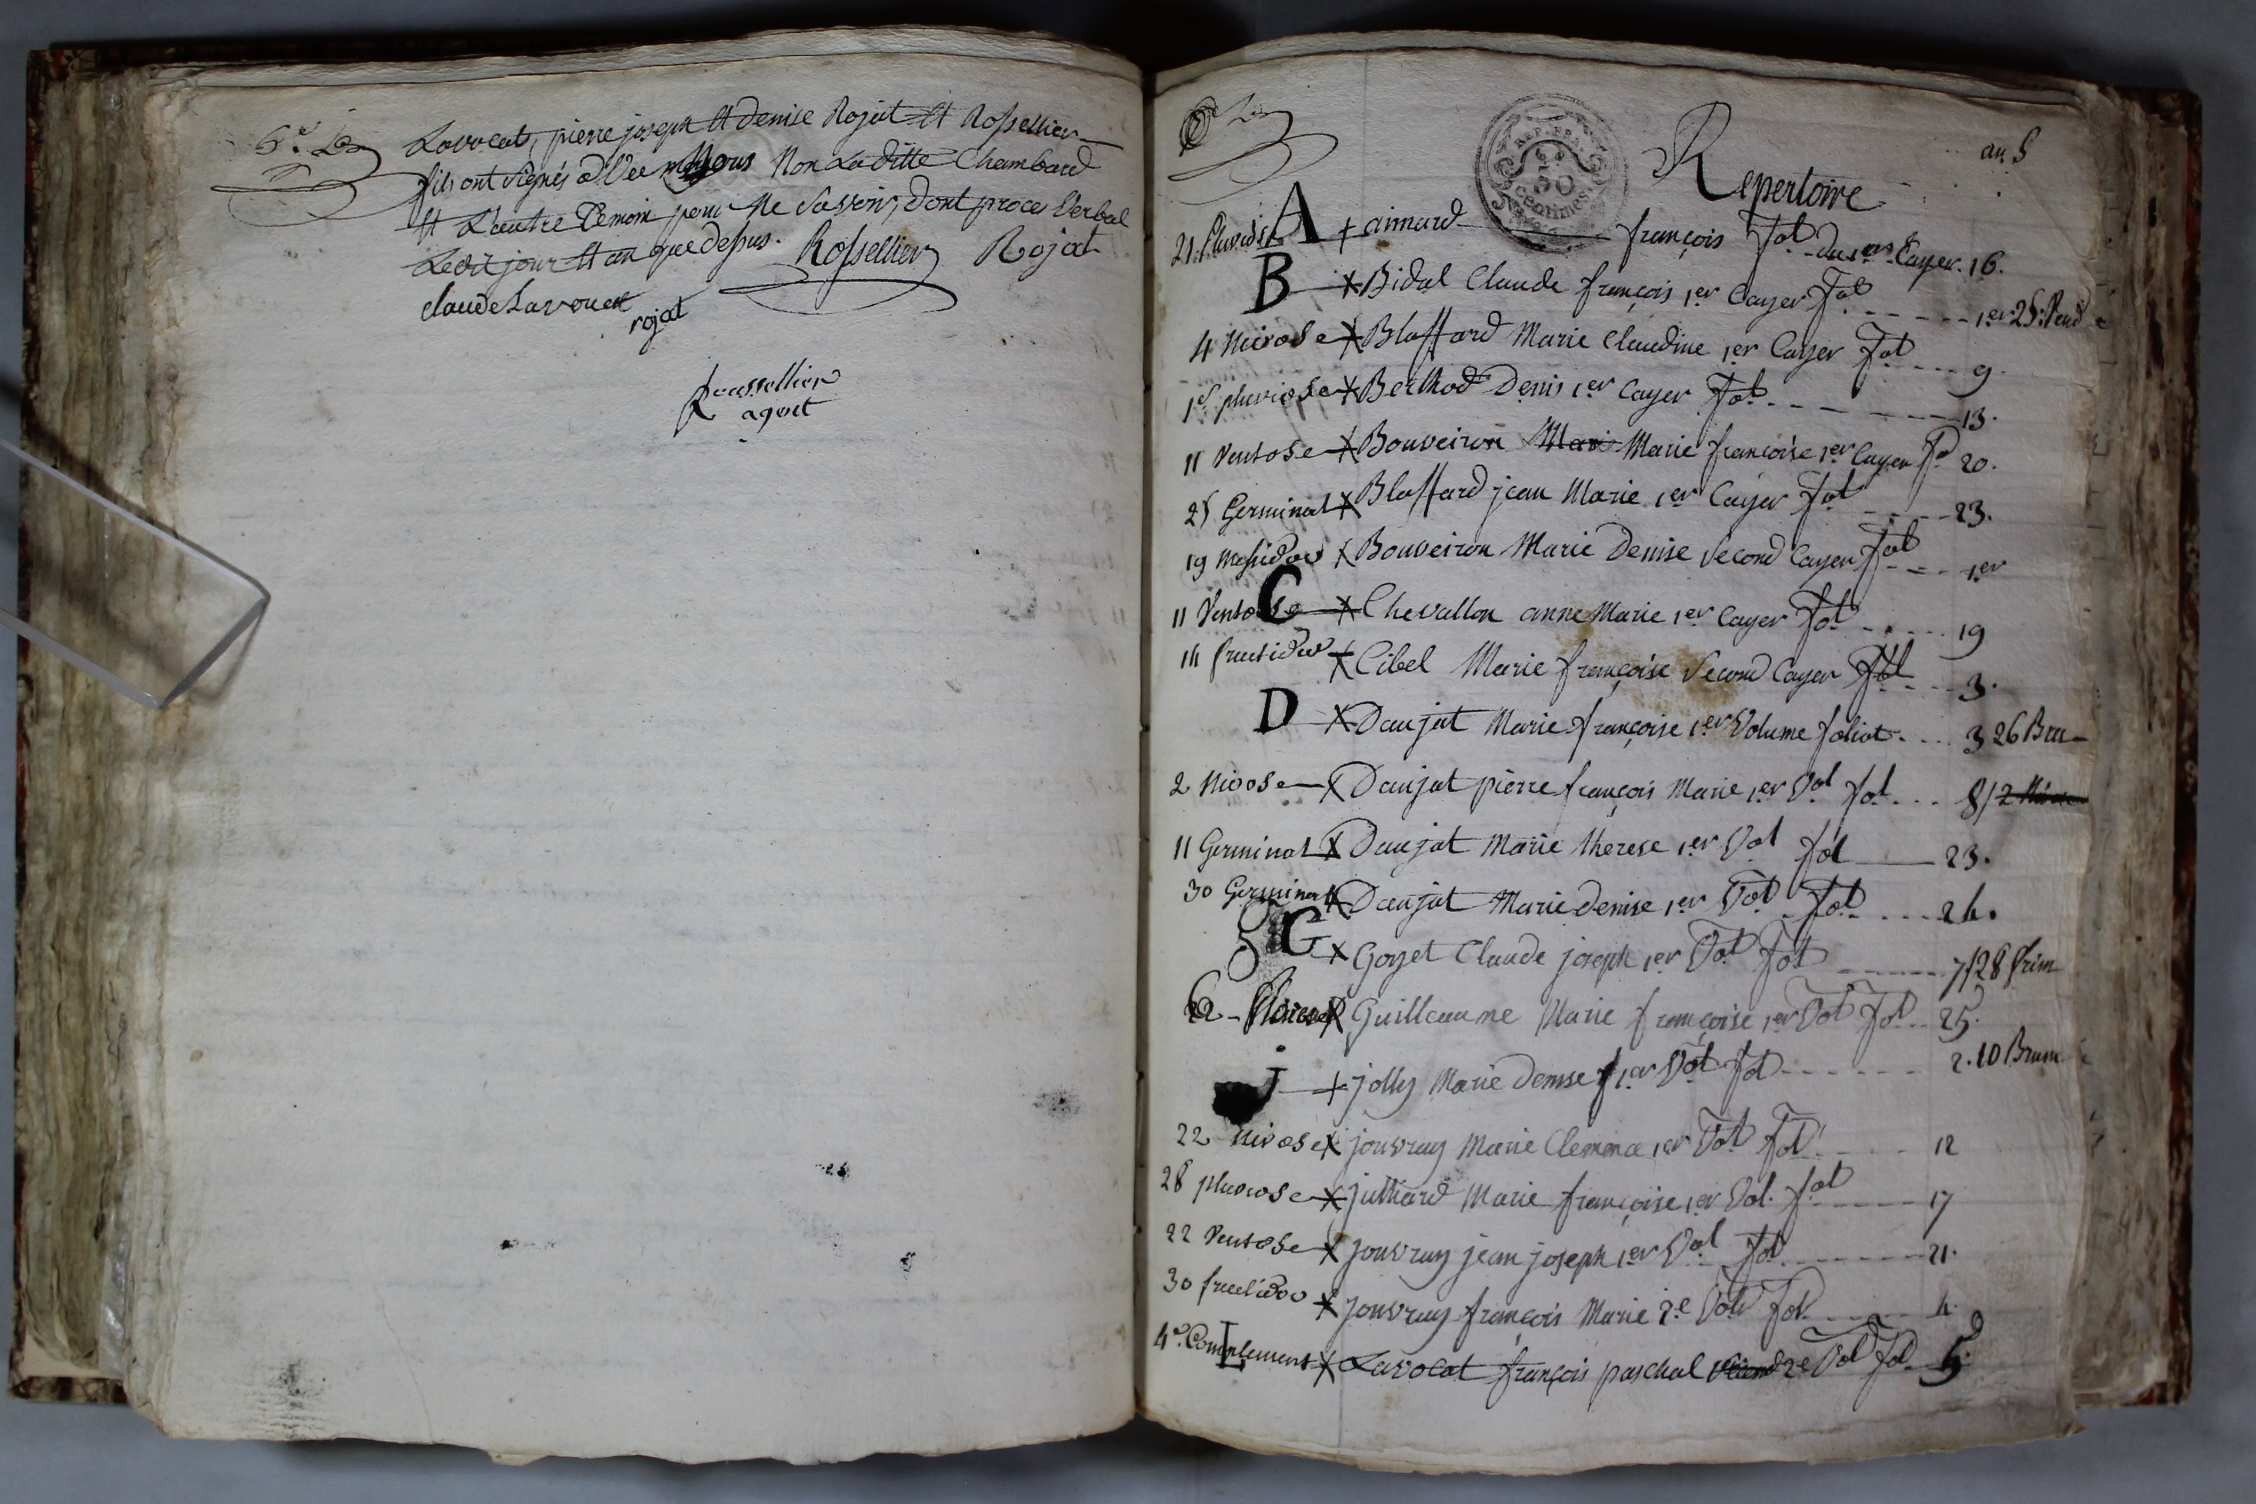 6.e
Lavocat, pierre joseph Et denise Rojat Et Rossellier
fils ont signés avec nous Non La ditte Chambard
Et L'autre Temoin pour Ne savoir, dont proces Verbal
Ledit jour Et an que dessus. Rossellier Rojat
claude Lavoucat
rojat
Roussellier
agent
REP. FRA.
50
centimes
an 5
Repertoire
21. Pluviose A + aimard françois fol du 1er Cayer. 16.
B X Bidal Claude françois 1er Cayer fol 1er. 25. Vend
4 Nivose X Blaffard Marie Claudine 1er Cayer fol 9.
1er pluviose X Berthod Denis 1er Cayer fol 13.
11 Ventose X Bouveiron Mari Marie françoise 1er Cayer fo 20.
25 Germinal X Blaffard jean Marie 1er Cayer fol 23.
19 Messidor X Bouveiron Marie Denise Second Cayer fol 1er
C
11 Ventose X Chevallon anne Marie 1er Cayer fol 19
14 fructidor X Cibel Marie françoise Second Cayer fol 3.
D X Daujat Marie françoise 1er Volume foliot 3 26 Bru
2 Nivose X Daujat pierre françois Marie 1er Vol fol 8/2 Nivose
11 Germinal X Daujat Marie therese 1er Vol fol 23.
30 Germinal X Daujat Marie denise 1er Vol fol 24.
G X Goyet Claude joseph 1er Vol fol 7/28 frim
X Guilleaume Marie françoise 1er Vol fol 25.
J + jolly Marie Denise 1er Vol fol 2. 10 Brum
22 Nivose X jouvray Marie Clemence 1er Vol fol 12
28 pluviose X julliard Marie françoise 1er Vol. fol 17
22 Ventose X jouvray jean joseph 1er Vol fol 21.
30 fructidor X jouvray françois Marie 2e Vol fol 4.
4e. Complement L X Lavocat françois paschal Second 2e Vol fol 5.